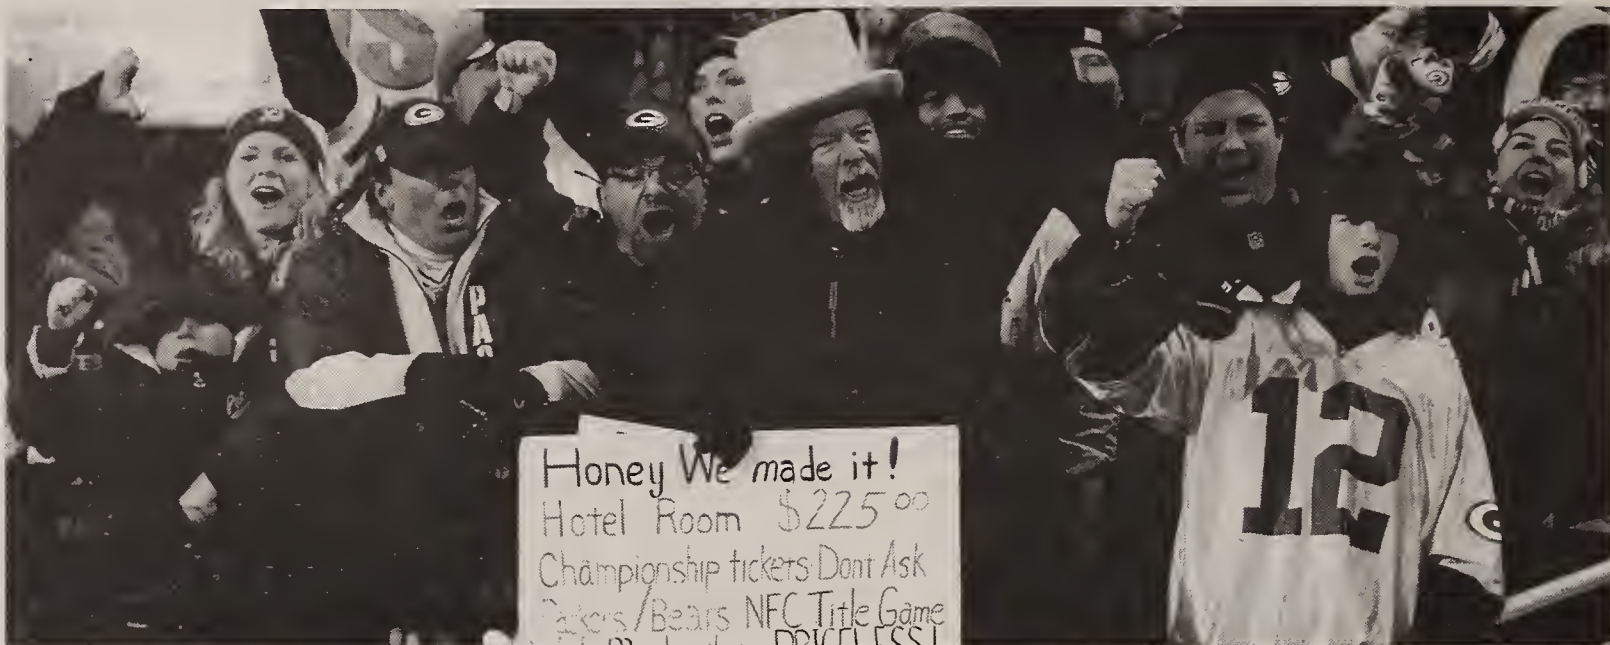 G
G
PAC
Honey We made it!
Hotel Room $225.00
Championship tickets Dont Ask
Packers/Bears NFC Title Game
PRICELESS!
12
G